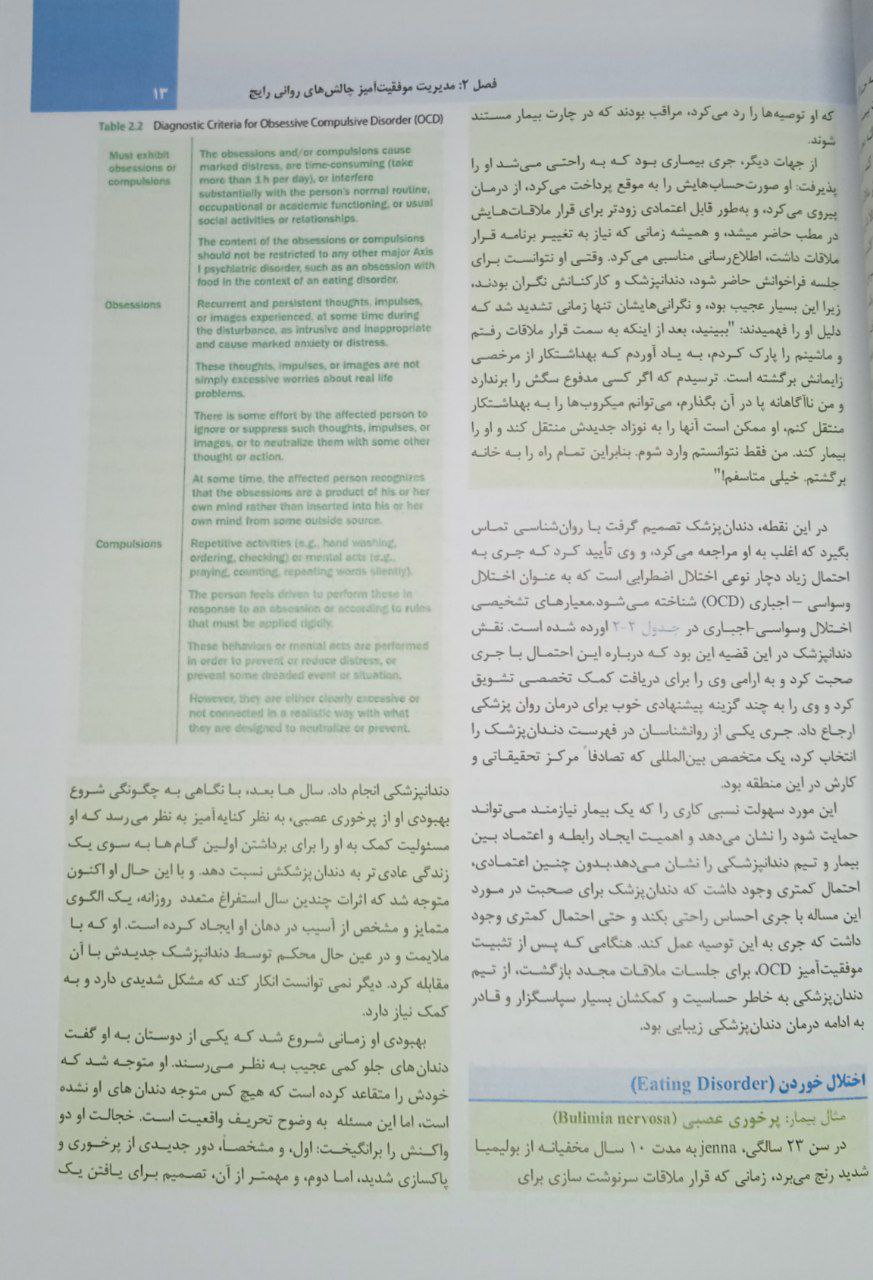 فصل ۲: مدیریت موفقیت‌آمیز چالش‌های روانی رایج
۱۳
که او توصیه‌ها را رد می‌کرد، مراقب بودند که در چارت بیمار مستند
شوند.
از جهات دیگر، جری بیماری بود که به راحتی می‌شد او را
پذیرفت: او صورت‌حساب‌هایش را به موقع پرداخت می‌کرد، از درمان
پیروی می‌کرد، و به‌طور قابل اعتمادی زودتر برای قرار ملاقات‌هایش
در مطب حاضر میشد، و همیشه زمانی که نیاز به تغییر برنامه قرار
ملاقات داشت، اطلاع‌رسانی مناسبی می‌کرد. وقتی او نتوانست برای
جلسه فراخوانش حاضر شود، دندانپزشک و کارکنانش نگران بودند،
زیرا این بسیار عجیب بود، و نگرانی‌هایشان تنها زمانی تشدید شد که
دلیل او را فهمیدند: "ببینید، بعد از اینکه به سمت قرار ملاقات رفتم
و ماشینم را پارک کردم، به یاد آوردم که بهداشتکار از مرخصی
زایمانش برگشته است. ترسیدم که اگر کسی مدفوع سگش را برندارد
و من ناآگاهانه پا در آن بگذارم، می‌توانم میکروب‌ها را به بهداشتکار
منتقل کنم، او ممکن است آنها را به نوزاد جدیدش منتقل کند و او را
بیمار کند. من فقط نتوانستم وارد شوم. بنابراین تمام راه را به خانه
برگشتم. خیلی متاسفم!"
در این نقطه، دندان‌پزشک تصمیم گرفت با روان‌شناسی تماس
بگیرد که اغلب به او مراجعه می‌کرد، و وی تأیید کرد که جری به
احتمال زیاد دچار نوعی اختلال اضطرابی است که به عنوان اختلال
وسواسی – اجباری (OCD) شناخته می‌شود.معیارهای تشخیصی
اختلال وسواسی-اجباری در جدول ۲-۲ اورده شده است. نقش
دندانپزشک در این قضیه این بود که درباره این احتمال با جری
صحبت کرد و به ارامی وی را برای دریافت کمک تخصصی تشویق
کرد و وی را به چند گزینه پیشنهادی خوب برای درمان روان پزشکی
ارجاع داد. جری یکی از روانشناسان در فهرست دندان‌پزشک را
انتخاب کرد، یک متخصص بین‌المللی که تصادفاً مرکز تحقیقاتی و
کارش در این منطقه بود.
این مورد سهولت نسبی کاری را که یک بیمار نیازمند می‌تواند
حمایت شود را نشان می‌دهد و اهمیت ایجاد رابطه و اعتماد بین
بیمار و تیم دندانپزشکی را نشان می‌دهد.بدون چنین اعتمادی،
احتمال کمتری وجود داشت که دندان‌پزشک برای صحبت در مورد
این مساله با جری احساس راحتی بکند و حتی احتمال کمتری وجود
داشت که جری به این توصیه عمل کند. هنگامی که پس از تثبیت
موفقیت‌آمیز OCD، برای جلسات ملاقات مجدد بازگشت، از تیم
دندان‌پزشکی به خاطر حساسیت و کمکشان بسیار سپاسگزار و قادر
به ادامه درمان دندان‌پزشکی زیبایی بود.
اختلال خوردن (Eating Disorder)
مثال بیمار: پرخوری عصبی (Bulimia nervosa)
در سن ۲۳ سالگی، jenna به مدت ۱۰ سال مخفیانه از بولیمیا
شدید رنج می‌برد، زمانی که قرار ملاقات سرنوشت سازی برای
Table 2.2 Diagnostic Criteria for Obsessive Compulsive Disorder (OCD)
Must exhibit
obsessions or
compulsions
The obsessions and/or compulsions cause
marked distress, are time-consuming (take
more than 1 h per day), or interfere
substantially with the person's normal routine,
occupational or academic functioning, or usual
social activities or relationships.
The content of the obsessions or compulsions
should not be restricted to any other major Axis
I psychiatric disorder, such as an obsession with
food in the context of an eating disorder.
Obsessions
Recurrent and persistent thoughts, impulses,
or images experienced, at some time during
the disturbance, as intrusive and inappropriate
and cause marked anxiety or distress.
These thoughts, impulses, or images are not
simply excessive worries about real life
problems.
There is some effort by the affected person to
ignore or suppress such thoughts, impulses, or
images, or to neutralize them with some other
thought or action.
At some time, the affected person recognizes
that the obsessions are a product of his or her
own mind rather than inserted into his or her
own mind from some outside source.
Compulsions
Repetitive activities (e.g., hand washing,
ordering, checking) or mental acts (e.g.,
praying, counting, repeating words silently).
The person feels driven to perform these in
response to an obsession or according to rules
that must be applied rigidly.
These behaviors or mental acts are performed
in order to prevent or reduce distress, or
prevent some dreaded event or situation.
However, they are either clearly excessive or
not connected in a realistic way with what
they are designed to neutralize or prevent.
دندانپزشکی انجام داد. سال ها بعد، با نگاهی به چگونگی شروع
بهبودی او از پرخوری عصبی، به نظر کنایه‌آمیز به نظر می‌رسد که او
مسئولیت کمک به او را برای برداشتن اولین گام‌ها به سوی یک
زندگی عادی‌تر به دندان‌پزشکش نسبت دهد. و با این حال او اکنون
متوجه شد که اثرات چندین سال استفراغ متعدد روزانه، یک الگوی
متمایز و مشخص از آسیب در دهان او ایجاد کرده است. او که با
ملایمت و در عین حال محکم توسط دندانپزشک جدیدش با آن
مقابله کرد. دیگر نمی توانست انکار کند که مشکل شدیدی دارد و به
کمک نیاز دارد.
بهبودی او زمانی شروع شد که یکی از دوستان به او گفت
دندان‌های جلو کمی عجیب به نظر می‌رسند. او متوجه شد که
خودش را متقاعد کرده است که هیچ کس متوجه دندان های او نشده
است، اما این مسئله به وضوح تحریف واقعیت است. خجالت او دو
واکنش را برانگیخت: اول، و مشخصاً، دور جدیدی از پرخوری و
پاکسازی شدید، اما دوم، و مهمتر از آن، تصمیم برای یافتن یک